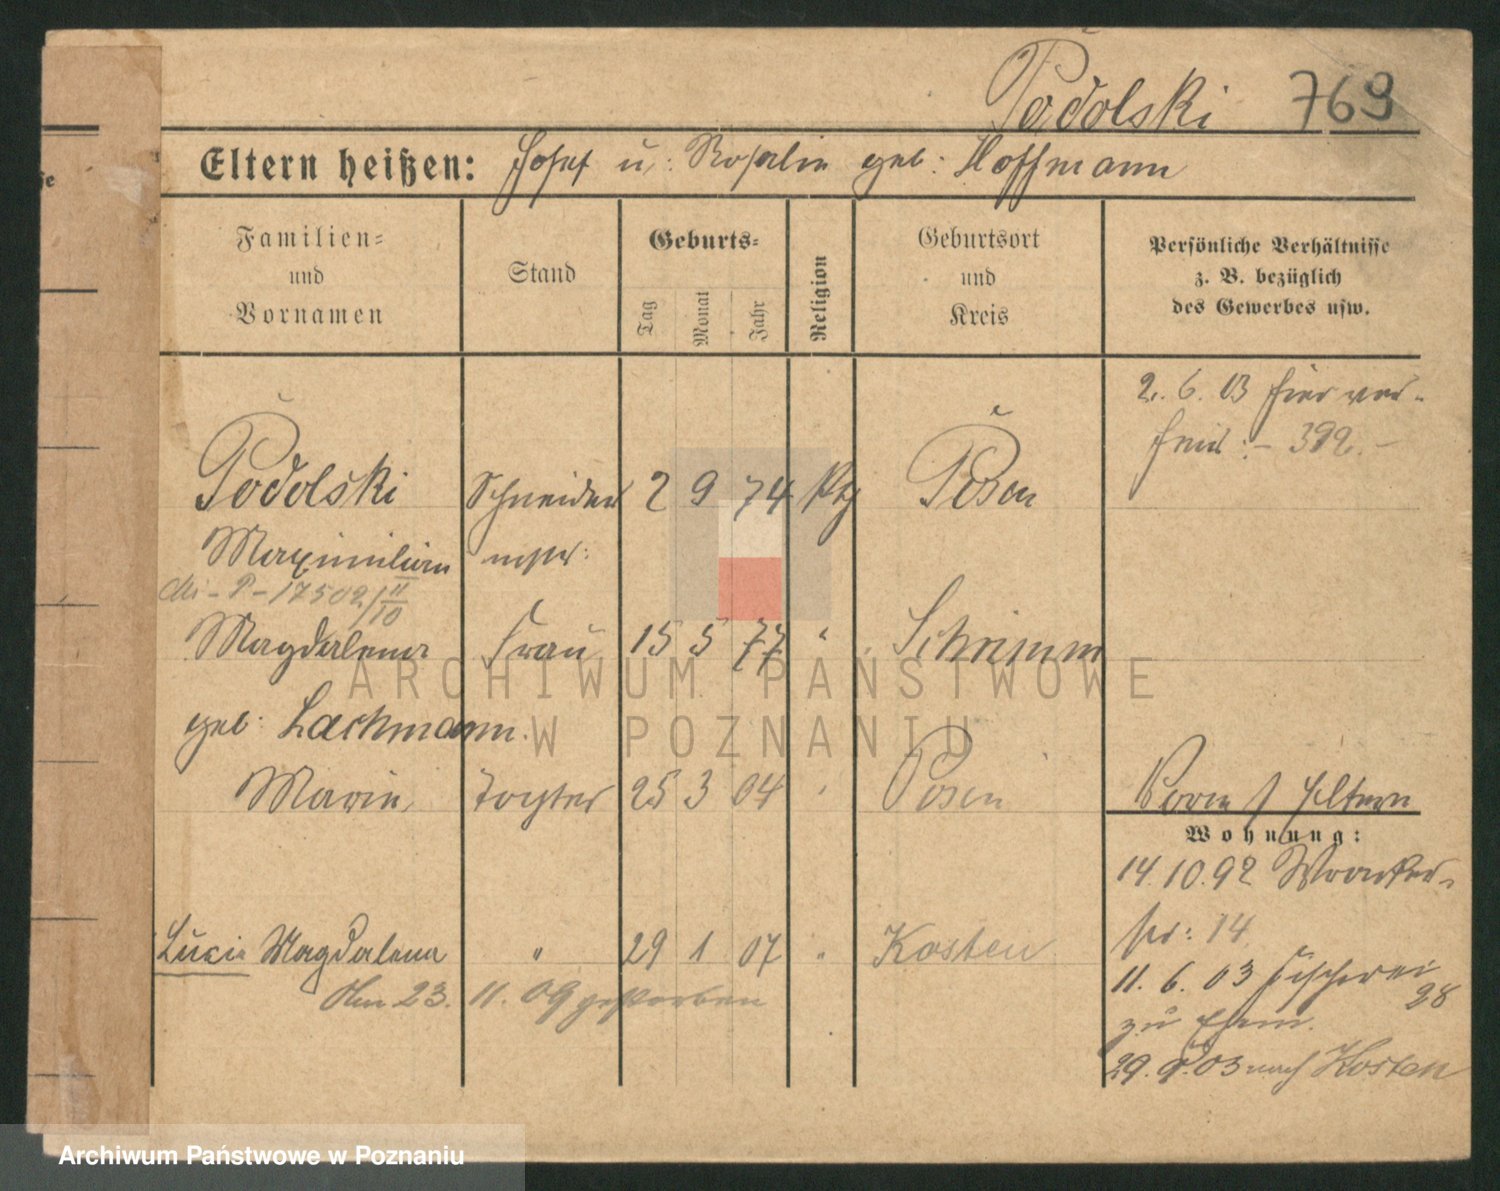 Podolski 769
Eltern heißen: Josef u: Rosalie geb: Hoffmann
Familien-
und
Vornamen
Stand
Geburts-
Tag
Monat
Jahr
Religion
Geburtsort
und
Kreis
Persönliche Verhältnisse
z. B. bezüglich
des Gewerbes usw.
2. 6. 03 hier ver-
Podolski Schneider 2 9 74 kth Posen
Maximilian mstr:
P-17502/II/10
Magdalena Frau 15 5 77 " Schrimm
geb: Lachmann.
Marie, Tochter 25 3 04 " Posen
Vorm / Eltern
Wohnung:
14.10.92 Wronker-
str: 14
Lucie Magdalena " 29 1 07 " Kosten
Am 23. 11. 09 gestorben
11. 6. 03 Fischerei 28
zu Ehem.
29. 9. 03 nach Kosten
ARCHIWUM PAŃSTWOWE
W POZNANIU
Archiwum Państwowe w Poznaniu